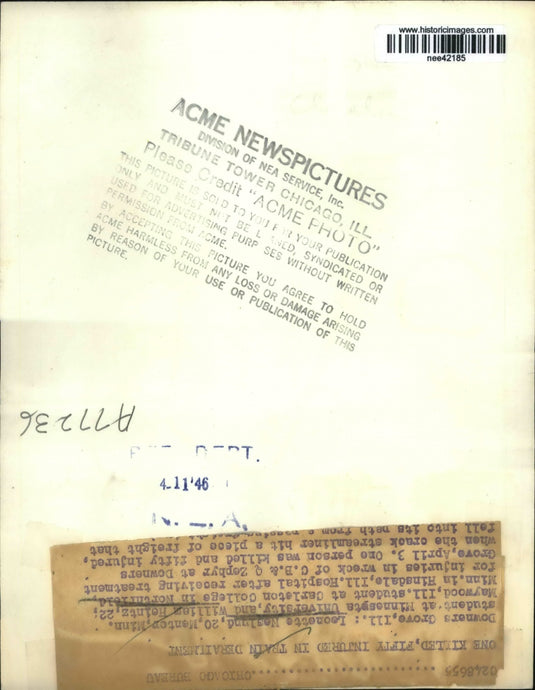 www.historicimages.com
nee42185
ACME NEWSPICTURES
DIVISION OF NEA SERVICE, Inc.
TRIBUNE TOWER CHICAGO, ILL.
Please Credit "ACME PHOTO"
THIS PICTURE IS SOLD TO YOU FOR YOUR PUBLICATION
ONLY AND MUST NOT BE L NED, SYNDICATED OR
USED FOR ADVERTISING PURP SES WITHOUT WRITTEN
PERMISSION FROM ACME.
BY ACCEPTING THIS PICTURE YOU AGREE TO HOLD
ACME HARMLESS FROM ANY LOSS OR DAMAGE ARISING
BY REASON OF YOUR USE OR PUBLICATION OF THIS
PICTURE.
A77236
DEPT.
4-11'46
N. E. A.
C248655...............CHICAGO BUREAU
ONE KILLED, FIFTY INJURED IN TRAIN DERAILMENT
Downers Grove, Ill.: Leonette Neglund, 20, Mentor, Minn.
student at Minnesota University, and William Heintz, 22,
Maywood, Ill, student at Carleton College in Northfield,
Minn. in Hinsdale, Ill. Hospital after receiving treatment
for injuries in wreck of C.B.& Q Zephyr at Downers
Grove, April 3. One person was killed and fifty injured,
when the crack streamliner hit a piece of freight that
fell into its path from a